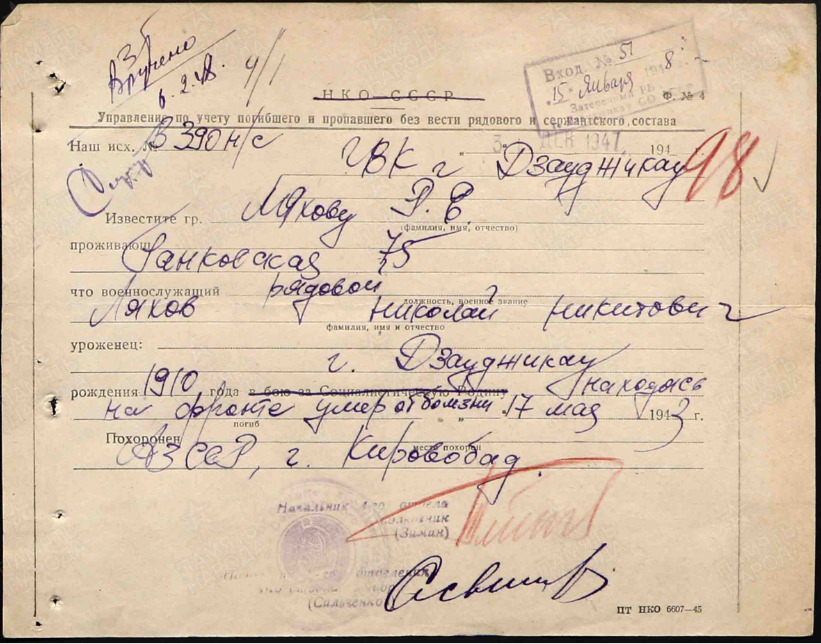 Вручено
6.2.48
4/1
Вход. № 51
15 Января 1948
НКО СССР
Ф. № 4
Управление по учету погибшего и пропавшего без вести рядового и сержантского состава
3 ДЕК 1947 194
Наш исх. № В 390 н/с
ГВК г Дзауджикау
98
Известите гр. Ляхову Р. Е.
(фамилия, имя, отчество)
проживающ Ганковская 75
что военнослужащий рядовой
должность, военное звание
Ляхов Николай Никитович
фамилия, имя и отчество
уроженец:
г. Дзауджикау
рождения 1910 года в бою за Социалистическую Родину находясь
на фронте умер от болезни 17 мая 1943 г.
погиб
Похоронен АЗССР, г. Кировобад.
место похорон
Начальник 4-го отдела
Полковник
(Зимин)
отделения
(Сальченко)
ПТ НКО 6607—45